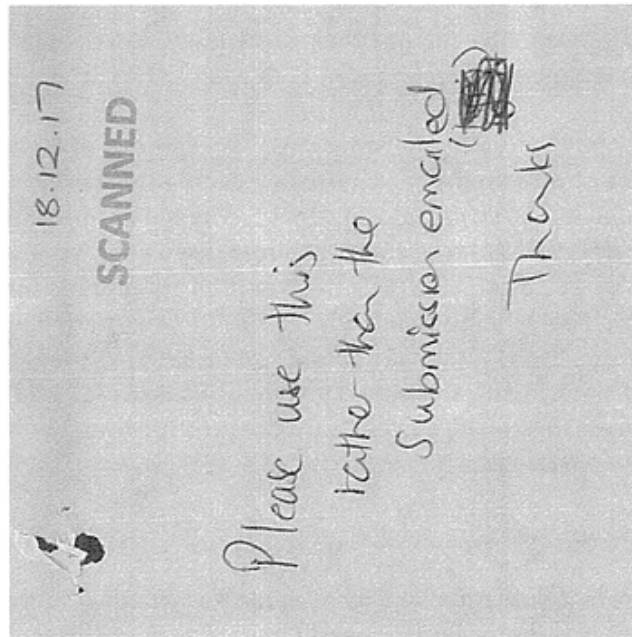 18.12.17
SCANNED
Please use this
rather than the
Submission emailed
Thanks